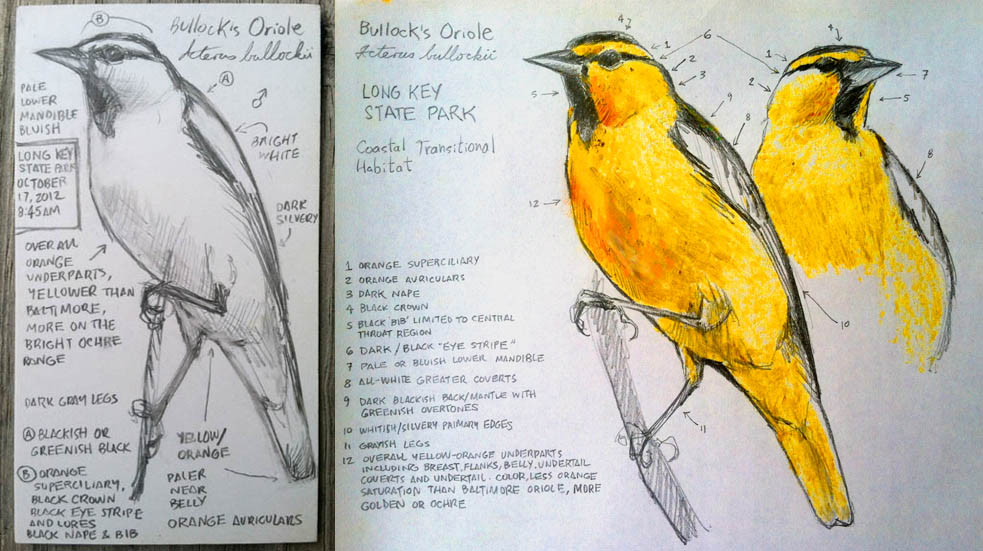 Bullock's Oriole
Icterus bullockii
B
A
♂
PALE
LOWER
MANDIBLE
BLUISH
BRIGHT
WHITE
LONG KEY
STATE PARK
OCTOBER
17, 2012
8:45AM
DARK
SILVERY
OVERALL
ORANGE
UNDERPARTS,
YELLOWER THAN
BALTIMORE,
MORE ON THE
BRIGHT OCHRE
RANGE
DARK GRAY LEGS
A BLACKISH OR
GREENISH BLACK
B ORANGE
SUPERCILIARY,
BLACK CROWN
BLACK EYE STRIPE
AND LORES
BLACK NAPE & BIB
YELLOW/
ORANGE
PALER
NEAR
BELLY
ORANGE AURICULARS
Bullock's Oriole
Icterus bullockii
LONG KEY
STATE PARK
Coastal Transitional
Habitat
1 ORANGE SUPERCILIARY
2 ORANGE AURICULARS
3 DARK NAPE
4 BLACK CROWN
5 BLACK 'BIB' LIMITED TO CENTRAL
THROAT REGION
6 DARK/BLACK "EYE STRIPE"
7 PALE OR BLUISH LOWER MANDIBLE
8 ALL-WHITE GREATER COVERTS
9 DARK BLACKISH BACK/MANTLE WITH
GREENISH OVERTONES
10 WHITISH/SILVERY PRIMARY EDGES
11 GRAYISH LEGS
12 OVERALL YELLOW-ORANGE UNDERPARTS
INCLUDING BREAST, FLANKS, BELLY, UNDERTAIL
COVERTS AND UNDERTAIL. COLOR, LESS ORANGE
SATURATION THAN BALTIMORE ORIOLE, MORE
GOLDEN OR OCHRE
4
1
6
2
3
5
9
8
12
10
11
4
1
2
7
5
8